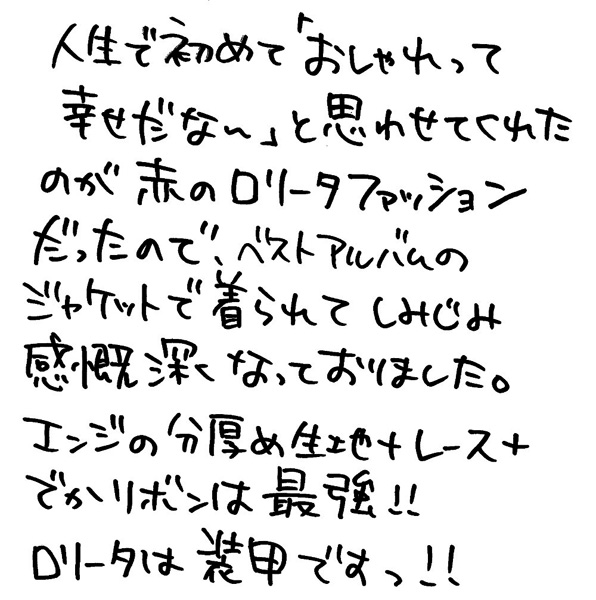 人生で初めて「おしゃれって
幸せだな〜」と思わせてくれた
のが赤のロリータファッション
だったので、ベストアルバムの
ジャケットで着られてしみじみ
感慨深くなっておりました。
エンジの分厚め生地+レース+
でかリボンは最強!!
ロリータは装甲ですっ!!